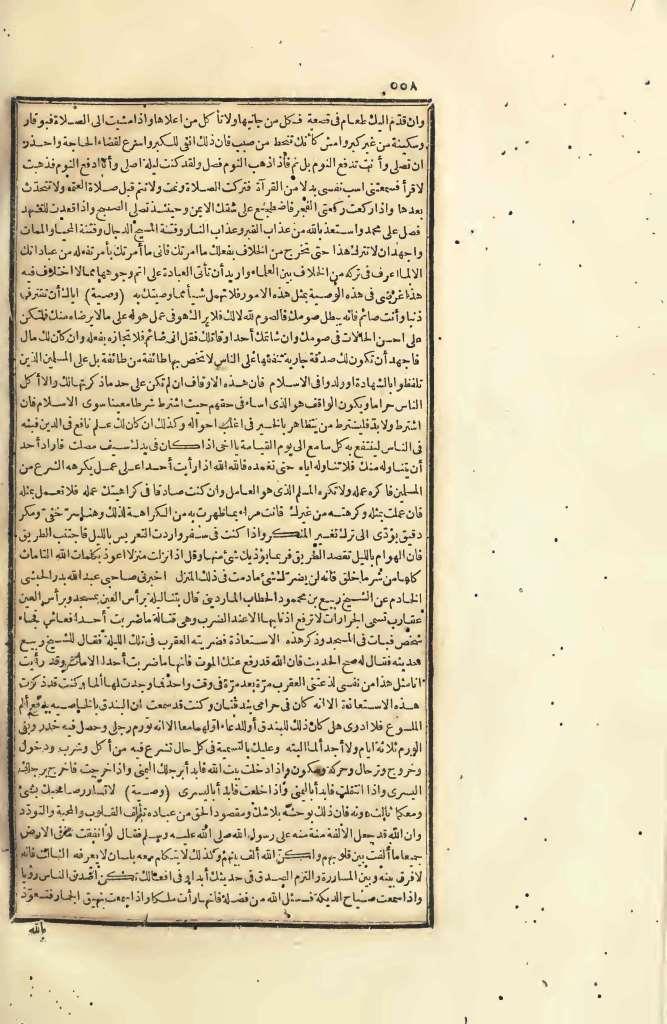 ٥٥٨
وان قدّم اليك طعام فى قصعة فكل من جانبها ولا تأكل من اعلاها واذا مشيت الى الصلاة فبوقار
وسكينة من غير كبر وامش كأنك تنحط من صبب فان ذلك انفى للكبر واسرع لقضاء الحاجة واحذر
ان تصلى وأنت تدفع النوم بل نم فاذا ذهب النوم فصل ولقد كنت ليلة اصلى وأنا ادفع النوم فذهبت
لاقرأ فسمعتنى اسب نفسى بدلا من القرآة فتركت الصلاة ونمت ولا تنم قبل صلاة العتمة ولا تتحدّث
بعدها واذا ركعت ركعتى الفجر فاضطجع على شقك الايمن وحينئذ تصلى الصبح واذا قعدت للتشهد
فصل على محمد واستعذ بالله من عذاب القبر وعذاب النار وفتنة المسيح الدجال وفتنة المحيا والممات
واجهد ان لا تترك هذا حتى تخرج من الخلاف بفعلك ما امرتك فانى ما أمرتك بأمر تفعله من عباداتك
الا لما اعرف فى تركه من الخلاف بين العلماء واريد أن تأتى العبادة على اتم وجوهها مما لا اختلاف فيه
هذا غرضى فى هذه الوصية بمثل هذه الامور فلا تهمل شيأ مما وصيتك به (وصية) اياك أن تقترف
ذنبا وأنت صائم فانه يبطل صومك فالصوم لله لا لك فلا يراك هو فى عمل هو له على ما لا يرضاه منك فلتكن
على احسن الحالات فى صومك وان شاتمك أحد او قاتلك فقل انى صائم فلا تجازه بفعله وان كان لك مال
فاجهد أن تكون لك صدقة جارية تنفقها على الناس لا تخص بها طائفة من طائفة بل على المسلمين الذين
تلفظوا بالشهادة او ولدوا فى الاسلام فان هذه الاوقاف ان لم تكن على حد ما ذكرته لك والا أكل
الناس حراما ويكون الواقف هو الذى اساء فى حقهم حيث اشترط شرطا معينا سوى الاسلام فان
اشترط ولا بدّ فليشترط من يتظاهر بالخير فى اغلب احواله وكذلك ان كان لك علم نافع فى الدين فبثه
فى الناس لينتفع به كل سامع الى يوم القيامة يا اخى اذا كان فى يدك سيف مصلت فأراد أحد
أن يتناوله منك فلا تناوله اياه حتى تغمده فالله الله اذا رأيت أحدا على عمل يكرهه الشرع من
المسلمين فاكره عمله ولا تكره المسلم الذى هو العامل وان كنت صادقا فى كراهيتك عمله فلا تعمل بمثله
فان عملت بمثله وكرهته من غيرك فانت مراء بما ظهرت به من الكراهة لذلك وهنا سرّ خفى ومكر
دقيق يؤدّى الى ترك تغيير المنكر واذا كنت فى سفر واردت التعريس بالليل فاجتنب الطريق
فان الهوام بالليل تقصد الطريق فربما يؤذيك شئ منها وقل اذا نزلت منزلا اعوذ بكلمات الله التامات
كلها من شر ما خلق فانه لن يضرك شئ ما دمت فى ذلك المنزل اخبرنى صاحبى عبد الله بدر الحبشى
الخادم عن الشيخ ربيع بن محمود الحطاب الماردينى قال بتنا ليلة برأس العين بمسجد وبرأس العين
عقارب تسمى الجرارات لا ترفع اذنابها الا عند الضرب وهى قتالة ما ضربت أحدا فعاش فجاء
شخص فبات فى المسجد وذكر هذه الاستعاذة فضربته العقرب فى تلك الليلة فقال للشيخ ربيع
حديثه فقال له صح الحديث فان الله قد رفع عنك الموت فانها ما ضربت أحدا الا مات وقد رأيت
انا مثل هذا من نفسى لدغتنى العقرب مرّة بعد مرّة فى وقت واحد فما وجدت لها ألما وكنت قد ذكرت
هذه الاستعاذة الا انه كان فى حزامى بندقتان وكنت قد سمعت ان البندق بالخاصية يدفع ألم
الملسوع فلا ادرى هل كان ذلك للبندق أو للدعاء اولهما معا الا انه تورم رجلى وحصل فيه خدر وبقى
الورم ثلاثة ايام ولا أجد ألما البتة وعليك بالتسمية فى كل حال تشرع فيه من أكل وشرب ودخول
وخروج وترحال وحركة وسكون واذا دخلت بيت الله فابدأ برجلك اليمنى واذا خرجت فأخرج برجلك
اليسرى واذا انتعلت فابدأ باليمنى واذا خلعت فابدأ باليسرى (وصية) لا تسارر صاحبك بشئ
ومعكما ثالث دونه فان ذلك يوحشه بلا شك ومقصود الحق من عباده تألف القلوب والمحبة والتودّد
وان الله قد جعل الالفة منة منه على رسوله الله صلى الله عليه وسلم فقال لو انفقت ما فى الارض
جميعا ما ألفت بين قلوبهم ولكن الله ألف بينهم وكذلك لا يتكلم معه بلسان لا يعرفه الثالث فانه
لا فرق بينه وبين المساررة والتزم الصدق فى حديثك أبدا وفى افعالك تكن اصدق الناس رؤيا
واذا سمعت صياح الديكة فسئل الله من فضله فانها رأت ملكا واذا سمعت نهيق الحمار فتعوّذ
بالله